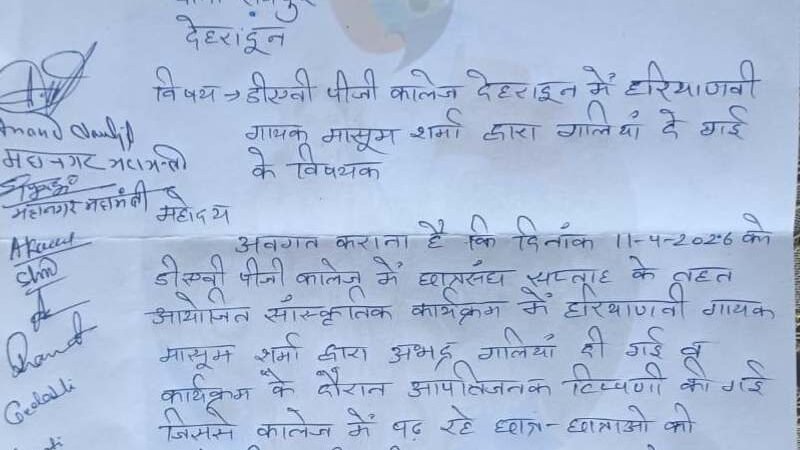 देहरादून
विषय → डीएवी पीजी कालेज देहरादून में हरियाणवी
गायक मासूम शर्मा द्वारा गालियाँ दे गई
के विषयक
महानगर महामन्त्री
महानगर महामंत्री
महोदय
अवगत कराना है कि दिनांक 11-4-2026 को
डीएवी पीजी कालेज में छात्रसंघ सप्ताह के तहत
आयोजित सांस्कृतिक कार्यक्रम में हरियाणवी गायक
मासूम शर्मा द्वारा अभद्र गालियाँ दी गई व
कार्यक्रम के दौरान आपतिजनक टिप्पणी की गई
जिससे कालेज में पढ़ रहे छात्र-छात्राओ को